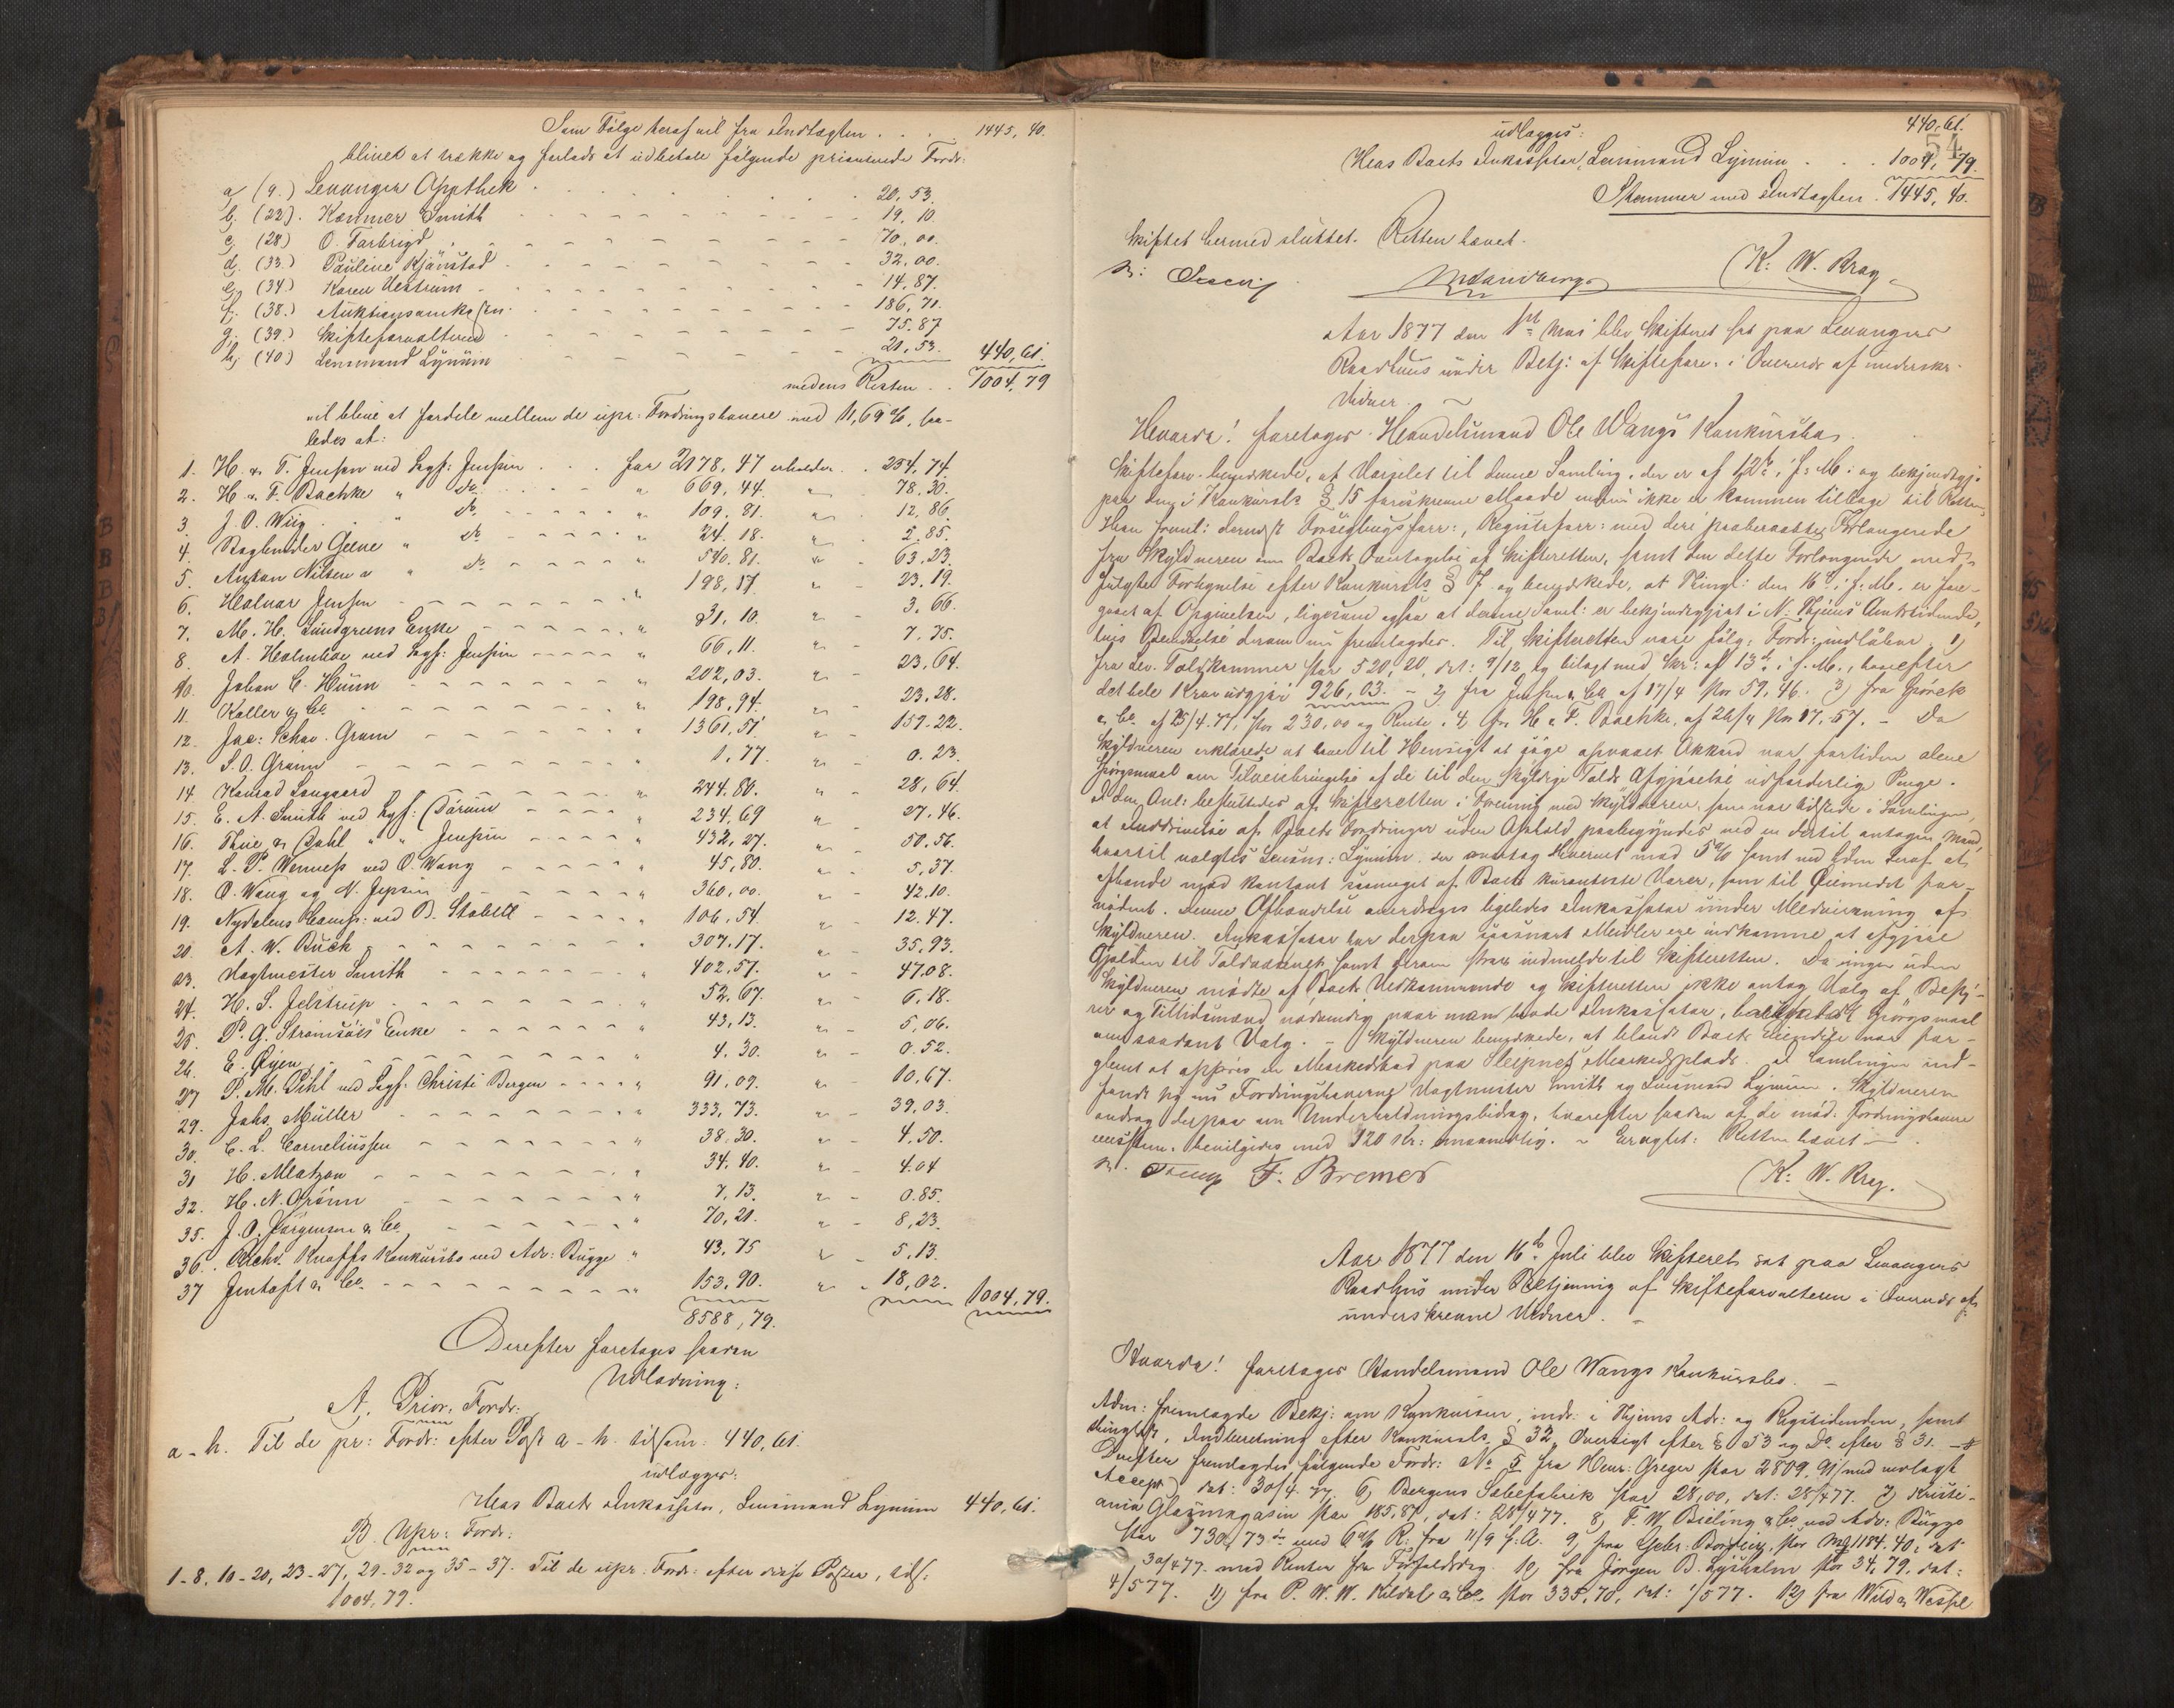 Som Følge heraf vil fra Indtægten . . . . 1445, 40.
blive at trække og forlods at udbetale følgende prioriterede Fordr:
a, (9.) Levanger Apothek . . . 20, 53.
b, (22). Kæmner Smith 19, 10
c, (28) O. Farbrigd 70, 00.
d, (33.) Pauline Kjønstad 32, 00.
e, (34) Karen Vestrum 14, 87.
f, (38.) Auktionsomkostn. 186, 71.
g, (39.) Skifteforvalteren 75. 87
h, (40) Lensmand Lynum 21, 53. 440, 61.
medens Resten . . 1004, 79
vil blive at fordele mellem de upr: Fordringshavere med 11,69 %, saa-
ledes at:
1. H. & T. Jensen ved Sagf: Jenssen . . . for 2178, 47 erholder . . 254, 74.
2. H. & F. Bachke " Do 669, 44. " 78. 30.
3. J. O. Wiig . " Do 109. 81. " 12. 86
4. Bagtender Geene " Do 24. 18. " 2. 85.
5. Anton Nilsen a " Do 540. 81. " 63. 23.
6. Halvor Jensen 198, 17. " 23. 19.
7. M. H. Lundgreens Enke 31, 10. " 3. 66.
8. A. Holmboe ved Sagf: Jenssen 66, 11. " 7. 75.
10. Johan C. Huun 202, 03. " 23, 64.
11. Koller & Co 198, 94. " 23, 28.
12. Jac: Schav. Gram 1361, 51 " 159. 22.
13. S. O. Grønn 1, 77. " 0. 23.
14. Konrad Langaard 244. 80. " 28, 64.
15. E. A. Smith ved Sagf: Børum 234, 69 " 27, 46.
16. Thue & Dahl " " Jenssen 432, 27. " 50, 56.
17. L. P. Wenness ved O. Wang 45, 80. " 5, 37.
18. O. Wang og N. Jepsen 360, 00. " 42. 10.
19. Nydalens Comp: ved B. Stabell 106, 54. " 12. 47.
20. A. W. Buck 307, 17. " 35. 93.
23. Vagtmester Smith 402, 57. " 47. 08.
24. H. S. Jelstrup 52, 67. " 6, 18.
25. P. G. Strømsøes Enke 43, 13. " 5, 06.
26. E. Øyen 4, 30. " 0. 52.
27 P. M. Pihl ved Sagf. Christi Bergen 91, 09. " 10, 67.
29. Johs. Müller 333, 73. " 39, 03.
30. C. L. Corneliussen 38. 30. " 4. 50.
31 H. Matzon 34. 40. " 4. 04
32. H. N. Grønn 7, 13. " 0. 85.
35. J. O. Jørgensen & Co 70, 21. " 8, 23.
36. Archd. Knoffs Konkursbo ved Adv: Bugge " 43, 75 " 5, 13.
37 Jentoft & Co. 153, 90. " 18, 02. 1004, 79.
8588, 79.
Derefter foretoges saadan
Udlodning:
A. Prior. Fordr:
a - h. Til de pr: Fordr: efter Post a - h. tilsam: 440, 61.
udlægges:
Hos Boets Inkassator, Lensmand Lynum 440, 61.
B. Upr: Fordr:
1-8, 10-20, 23-27, 29-32 og 35-37. Til de upr. Fordr: efter disse Poster, tils:
1004, 79.
440, 61.
54
udlægges:
Hos Boets Inkassator, Lensmand Lynum . . . 1004, 79.
Stemmer med Indtægten . 1445, 40.
Skiftet hermed sluttet. Retten hævet.
K: W. Krag
Aar 1877 den 1st Mai blev Skifteret sat paa Levangers
Raadhuus under Betj: af Skifteforv. i Overvær af underskr.
Vidner.
Hvorda! foretoges Handelsmand Ole Wangs Konkursbo.
Skifteforv. bemærkede, at Varselet til denne Samling, der er af 12te i f: M: og bekjendtgj.
paa den i Konkursls § 15 foreskrevne Maade endnu ikke er kommen tilbage til Retten.
Han freml: dernæst Forseglingsforr:, Registrforr: med deri paaberaabte Forlangende
fra Skyldneren om Boets Overtagelse af Skifteretten, samt den dette Forlangende med-
fulgte Fortegnelse efter Konkursls § 7 og bemærkede, at Thingl: den 16de i f: M. er fore-
gaaet af Opgivelsen, ligesom ogsaa at denne Saml: er bekjendtgjort i N. Thjems Amtstidende,
hvis Genpart derom nu fremlagdes. Til Skifteretten vare følg: Fordr: indløbne. 1)
fra Lev. Toldkammer stor 520, 20, dat: 9/12 og bilagt med Skr: af 13de i f. M., hvorefter
det hele Krav udgjør 926, 03. - 2) fra Jenssen & Co af 17/4 stor 59, 46. 3) fra Hørck
& Co. af 25/4. 77, stor 230, 00 og Rente. 4, fra H & F. Bachke, af 26/4 stor 17. 57. - Da
Skyldneren erklærede at have til Hensigt at søge opnaaet Akkord var fortiden alene
Spørgsmaal om Tilveiebringelse af de til den skyldige Tolds Afgjørelse udfordrelige Penge.
I den Anl: besluttedes af Skifteretten i Forening med Skyldneren, som var tilstede i Samlingen,
at Inddrivelse af Boets Fordringer uden Ophold paabegyndes ved en dertil antagen Mand,
hvortil valgtes Lensm: Lynum, der overtog Hvervet mod 5 % samt ved Siden deraf at
afhænde mod kontant saameget af Boets kuranteste Varer, som til Øiemedet for-
nødent. Denne Afhændelse overdroges ligeledes Inkassator under Medvirkning af
Skyldneren. Inkassator har derpaa saasnart Midler ere indkomne at afgjøre
Gjælden til Toldvæsenet samt derom strax indmelde til Skifteretten. Da ingen uden
Skyldneren mødte af Boets Vedkommende og Skifteretten ikke antog Valg af Besty-
rer og Tillidsmænd nødvendig naar man havde Inkassator, bortfaldt Spørgsmaal
om saadant Valg. - Skyldneren bemærkede, at blandt Boets Eiendele var for-
glemt at opføres en Markedsbod paa Sleipnes Markedsplads. I Samlingen ind-
fandt sig nu Fordringshaverne Vagtmester Smith og Lensmand Lynum. Skyldneren
androg derpaa om Underholdningsbidrag, hvorefter saadan af de mød: Fordringshavere
eenstem. bevilgedes med 120 Kr: maanedlig. - Oraglet: Retten hævet -
F. Bremer
K: W. Krag.
Aar 1877 den 16de Juli blev Skifteret sat paa Levangers
Raadhus under Betjening af Skifteforvalteren i Overvær af
underskrevne Vidner.
Hvorda! foretoges Handelsmand Ole Wangs Konkursbo.
Adm: fremlagde Bekj: om Konkursen, indr: i Thjems Adr: og Rigstidenden, samt
thinglæst, Indberetning efter Konkursls § 32, Oversigt efter § 53 og Do. efter § 31. -
Derefter fremlagdes følgende Fordr: No 5 fra Henr: Greger stor 2809, 91 med vedlagt
Accept, dat: 30/4. 77. 6) Bergens Sæbefabrik stor 28,00, dat: 28/477. 7) Kristi-
ania Glasmagasin stor 185, 87, dat: 28/477. 8) F. W. Bieling & Co ved Adv: Bugge
stor 730, 73 ør med 6 % R: fra 11/9 f. A. 9) fra Gebr: Bordeig, stor Mk 1184. 40, dat
30/477. med Renter fra Forfaldsdag. 10) fra Jørgen B. Lysholm stor 34, 79, dat:
4/577. 11) fra P. W. W. Kildal & Co. stor 335, 70, dat: 1/577. 12) fra Wild & Wessel